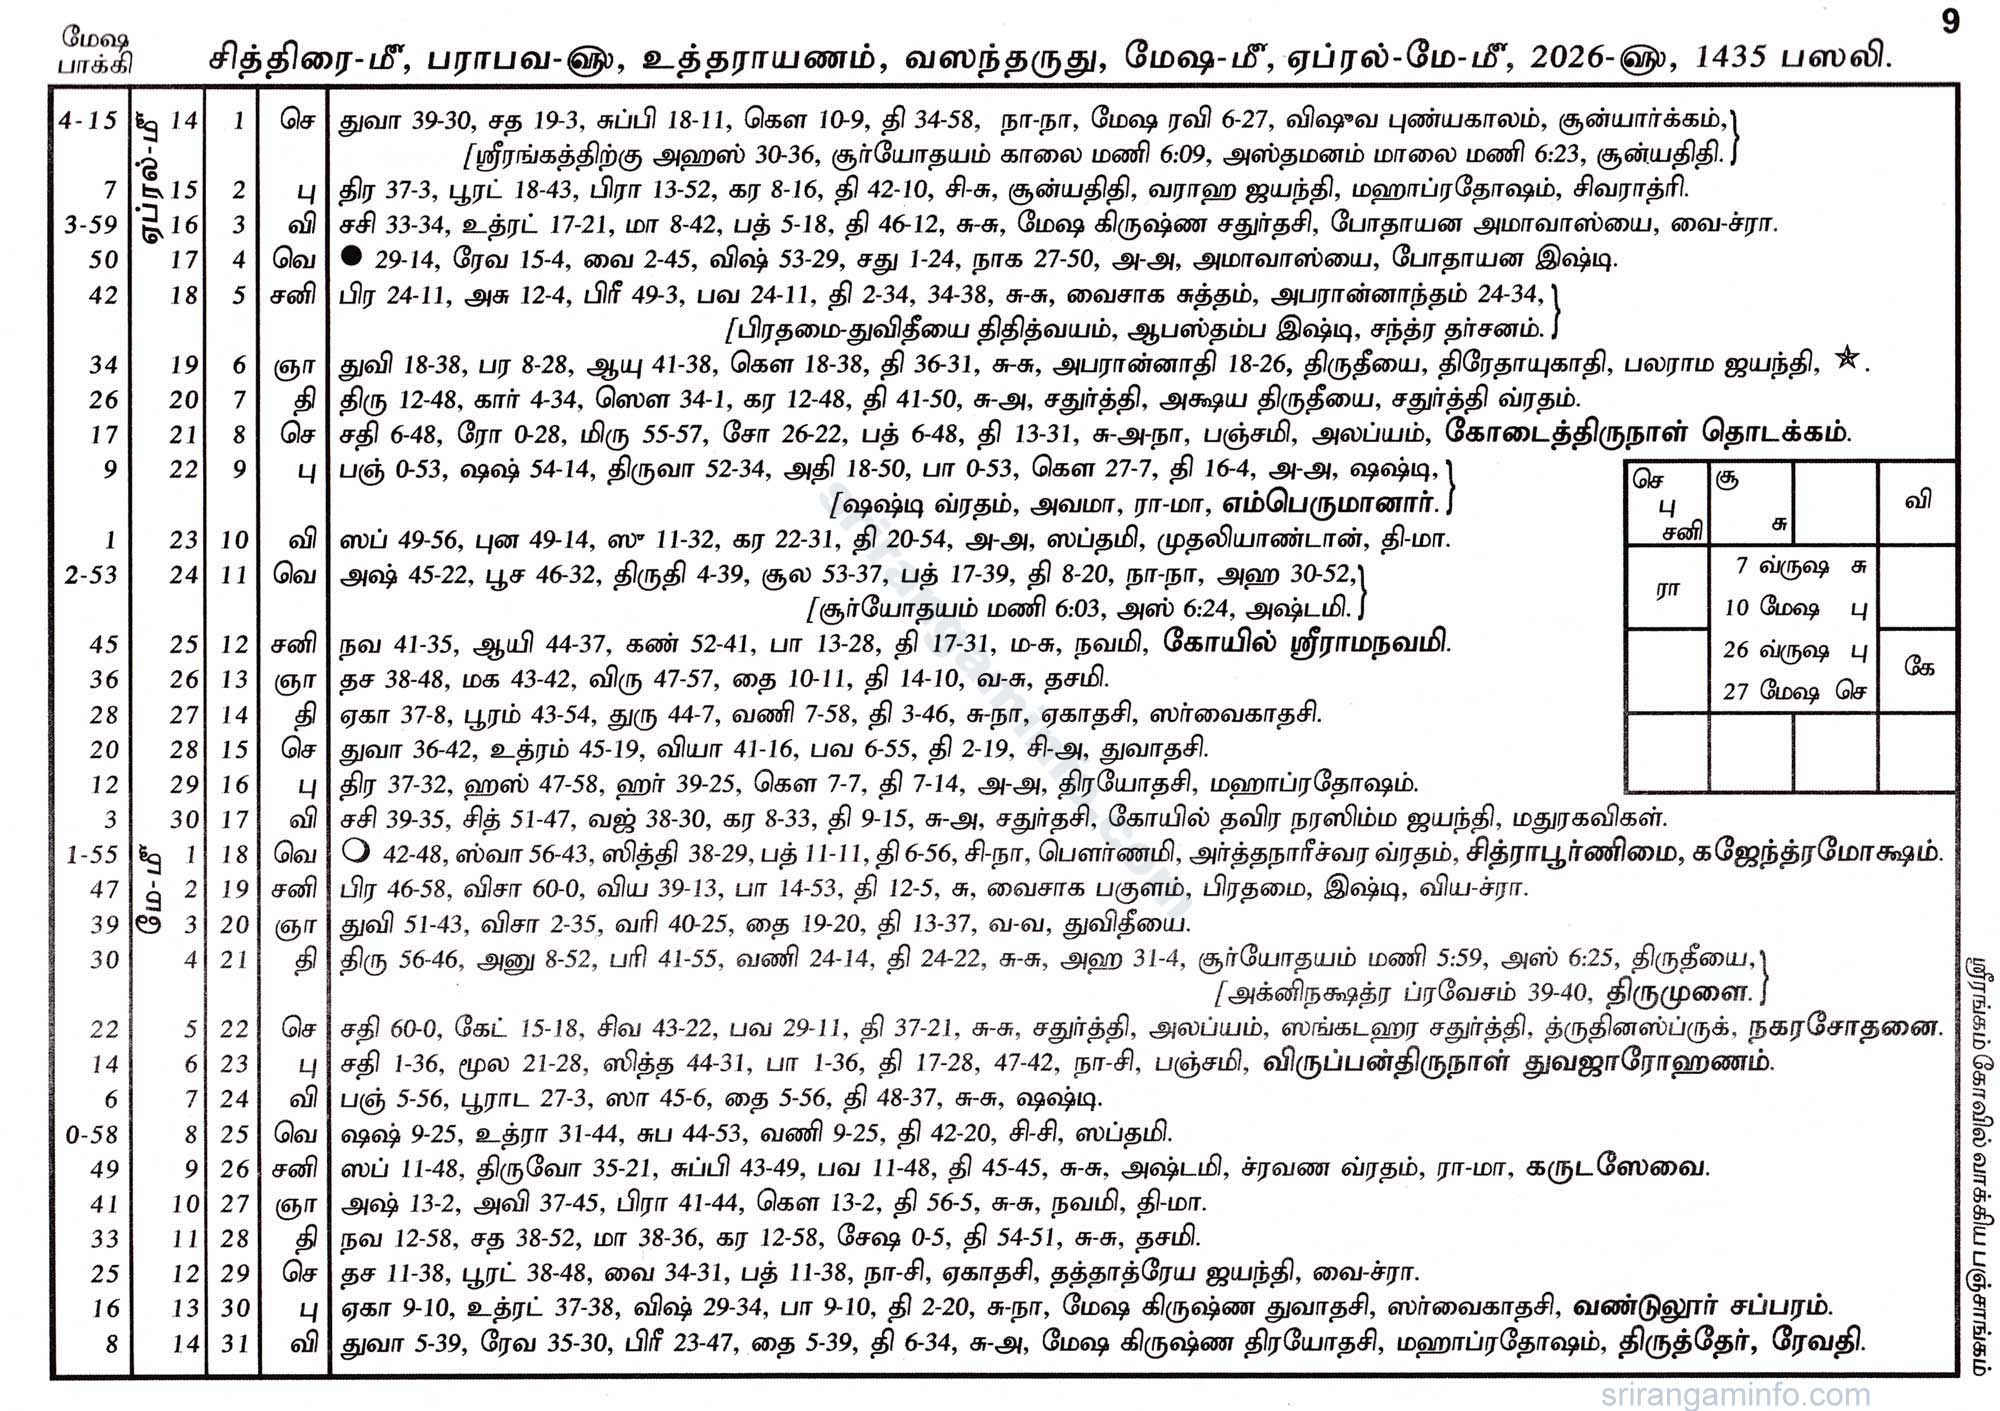 9
மேஷ
பாக்கி
சித்திரை-மீ, பராபவ-௵, உத்தராயணம், வஸந்தருது, மேஷ-மீ, ஏப்ரல்-மே-மீ, 2026-௵, 1435 பஸலி.
4-15 ஏப்ரல்-மீ 14 1 செ துவா 39-30, சத 19-3, சுப்பி 18-11, கௌ 10-9, தி 34-58, நா-நா, மேஷ ரவி 6-27, விஷுவ புண்யகாலம், சூன்யார்க்கம்,}
[ஸ்ரீரங்கத்திற்கு அஹஸ் 30-36, சூர்யோதயம் காலை மணி 6:09, அஸ்தமனம் மாலை மணி 6:23, சூன்யதிதி.}
7 15 2 பு திர 37-3, பூரட் 18-43, பிரா 13-52, கர 8-16, தி 42-10, சி-சு, சூன்யதிதி, வராஹ ஜயந்தி, மஹாப்ரதோஷம், சிவராத்ரி.
3-59 16 3 வி சசி 33-34, உத்ரட் 17-21, மா 8-42, பத் 5-18, தி 46-12, சு-சு, மேஷ கிருஷ்ண சதுர்தசி, போதாயன அமாவாஸ்யை, வை-ச்ரா.
50 17 4 வெ ● 29-14, ரேவ 15-4, வை 2-45, விஷ் 53-29, சது 1-24, நாக 27-50, அ-அ, அமாவாஸ்யை, போதாயன இஷ்டி.
42 18 5 சனி பிர 24-11, அசு 12-4, பிரீ 49-3, பவ 24-11, தி 2-34, 34-38, சு-சு, வைசாக சுத்தம், அபரான்னாந்தம் 24-34,}
[பிரதமை-துவிதீயை திதித்வயம், ஆபஸ்தம்ப இஷ்டி, சந்த்ர தர்சனம்.}
34 19 6 ஞா துவி 18-38, பர 8-28, ஆயு 41-38, கௌ 18-38, தி 36-31, சு-சு, அபரான்னாதி 18-26, திருதீயை, திரேதாயுகாதி, பலராம ஜயந்தி, ☆.
26 20 7 தி திரு 12-48, கார் 4-34, ஸௌ 34-1, கர 12-48, தி 41-50, சு-அ, சதுர்த்தி, அக்ஷய திருதீயை, சதுர்த்தி வ்ரதம்.
17 21 8 செ சதி 6-48, ரோ 0-28, மிரு 55-57, சோ 26-22, பத் 6-48, தி 13-31, சு-அ-நா, பஞ்சமி, அலப்யம், கோடைத்திருநாள் தொடக்கம்.
9 22 9 பு பஞ் 0-53, ஷஷ் 54-14, திருவா 52-34, அதி 18-50, பா 0-53, கௌ 27-7, தி 16-4, அ-அ, ஷஷ்டி,}
[ஷஷ்டி வ்ரதம், அவமா, ரா-மா, எம்பெருமானார்.}
1 23 10 வி ஸப் 49-56, புன 49-14, ஸு 11-32, கர 22-31, தி 20-54, அ-அ, ஸப்தமி, முதலியாண்டான், தி-மா.
2-53 24 11 வெ அஷ் 45-22, பூச 46-32, திருதி 4-39, சூல 53-37, பத் 17-39, தி 8-20, நா-நா, அஹ 30-52,}
[சூர்யோதயம் மணி 6:03, அஸ் 6:24, அஷ்டமி.}
45 25 12 சனி நவ 41-35, ஆயி 44-37, கண் 52-41, பா 13-28, தி 17-31, ம-சு, நவமி, கோயில் ஸ்ரீராமநவமி.
36 26 13 ஞா தச 38-48, மக 43-42, விரு 47-57, தை 10-11, தி 14-10, வ-சு, தசமி.
28 27 14 தி ஏகா 37-8, பூரம் 43-54, துரு 44-7, வணி 7-58, தி 3-46, சு-நா, ஏகாதசி, ஸர்வைகாதசி.
20 28 15 செ துவா 36-42, உத்ரம் 45-19, வியா 41-16, பவ 6-55, தி 2-19, சி-அ, துவாதசி.
12 29 16 பு திர 37-32, ஹஸ் 47-58, ஹர் 39-25, கௌ 7-7, தி 7-14, அ-அ, திரயோதசி, மஹாப்ரதோஷம்.
3 30 17 வி சசி 39-35, சித் 51-47, வஜ் 38-30, கர 8-33, தி 9-15, சு-அ, சதுர்தசி, கோயில் தவிர நரஸிம்ம ஜயந்தி, மதுரகவிகள்.
1-55 மே-மீ 1 18 வெ ❍ 42-48, ஸ்வா 56-43, ஸித்தி 38-29, பத் 11-11, தி 6-56, சி-நா, பௌர்ணமி, அர்த்தநாரீச்வர வ்ரதம், சித்ராபூர்ணிமை, கஜேந்த்ரமோக்ஷம்.
47 2 19 சனி பிர 46-58, விசா 60-0, விய 39-13, பா 14-53, தி 12-5, சு, வைசாக பகுளம், பிரதமை, இஷ்டி, விய-ச்ரா.
39 3 20 ஞா துவி 51-43, விசா 2-35, வரி 40-25, தை 19-20, தி 13-37, வ-வ, துவிதீயை.
30 4 21 தி திரு 56-46, அனு 8-52, பரி 41-55, வணி 24-14, தி 24-22, சு-சு, அஹ 31-4, சூர்யோதயம் மணி 5:59, அஸ் 6:25, திருதீயை,}
[அக்னிநக்ஷத்ர ப்ரவேசம் 39-40, திருமுளை.}
22 5 22 செ சதி 60-0, கேட் 15-18, சிவ 43-22, பவ 29-11, தி 37-21, சு-சு, சதுர்த்தி, அலப்யம், ஸங்கடஹர சதுர்த்தி, த்ருதினஸ்ப்ருக், நகரசோதனை.
14 6 23 பு சதி 1-36, மூல 21-28, ஸித்த 44-31, பா 1-36, தி 17-28, 47-42, நா-சி, பஞ்சமி, விருப்பன்திருநாள் துவஜாரோஹணம்.
6 7 24 வி பஞ் 5-56, பூராட 27-3, ஸா 45-6, தை 5-56, தி 48-37, சு-சு, ஷஷ்டி.
0-58 8 25 வெ ஷஷ் 9-25, உத்ரா 31-44, சுப 44-53, வணி 9-25, தி 42-20, சி-சி, ஸப்தமி.
49 9 26 சனி ஸப் 11-48, திருவோ 35-21, சுப்பி 43-49, பவ 11-48, தி 45-45, சு-சு, அஷ்டமி, ச்ரவண வ்ரதம், ரா-மா, கருடஸேவை.
41 10 27 ஞா அஷ் 13-2, அவி 37-45, பிரா 41-44, கௌ 13-2, தி 56-5, சு-சு, நவமி, தி-மா.
33 11 28 தி நவ 12-58, சத 38-52, மா 38-36, கர 12-58, சேஷ 0-5, தி 54-51, சு-சு, தசமி.
25 12 29 செ தச 11-38, பூரட் 38-48, வை 34-31, பத் 11-38, நா-சி, ஏகாதசி, தத்தாத்ரேய ஜயந்தி, வை-ச்ரா.
16 13 30 பு ஏகா 9-10, உத்ரட் 37-38, விஷ் 29-34, பா 9-10, தி 2-20, சு-நா, மேஷ கிருஷ்ண துவாதசி, ஸர்வைகாதசி, வண்டுலூர் சப்பரம்.
8 14 31 வி துவா 5-39, ரேவ 35-30, பிரீ 23-47, தை 5-39, தி 6-34, சு-அ, மேஷ கிருஷ்ண திரயோதசி, மஹாப்ரதோஷம், திருத்தேர், ரேவதி.
செ சூ
பு சு வி
சனி
ரா
7 வ்ருஷ சு
10 மேஷ பு
26 வ்ருஷ பு
27 மேஷ செ
கே
ஸ்ரீரங்கம் கோவில் வாக்கிய பஞ்சாங்கம்
srirangaminfo.com
srirangaminfo.com